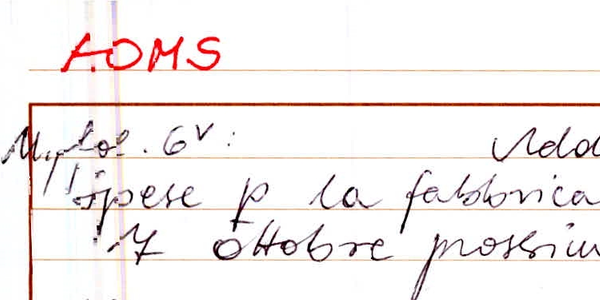 AOMS
fol. 6v: Add
spese p la fabbrica
17 ottobre prossim